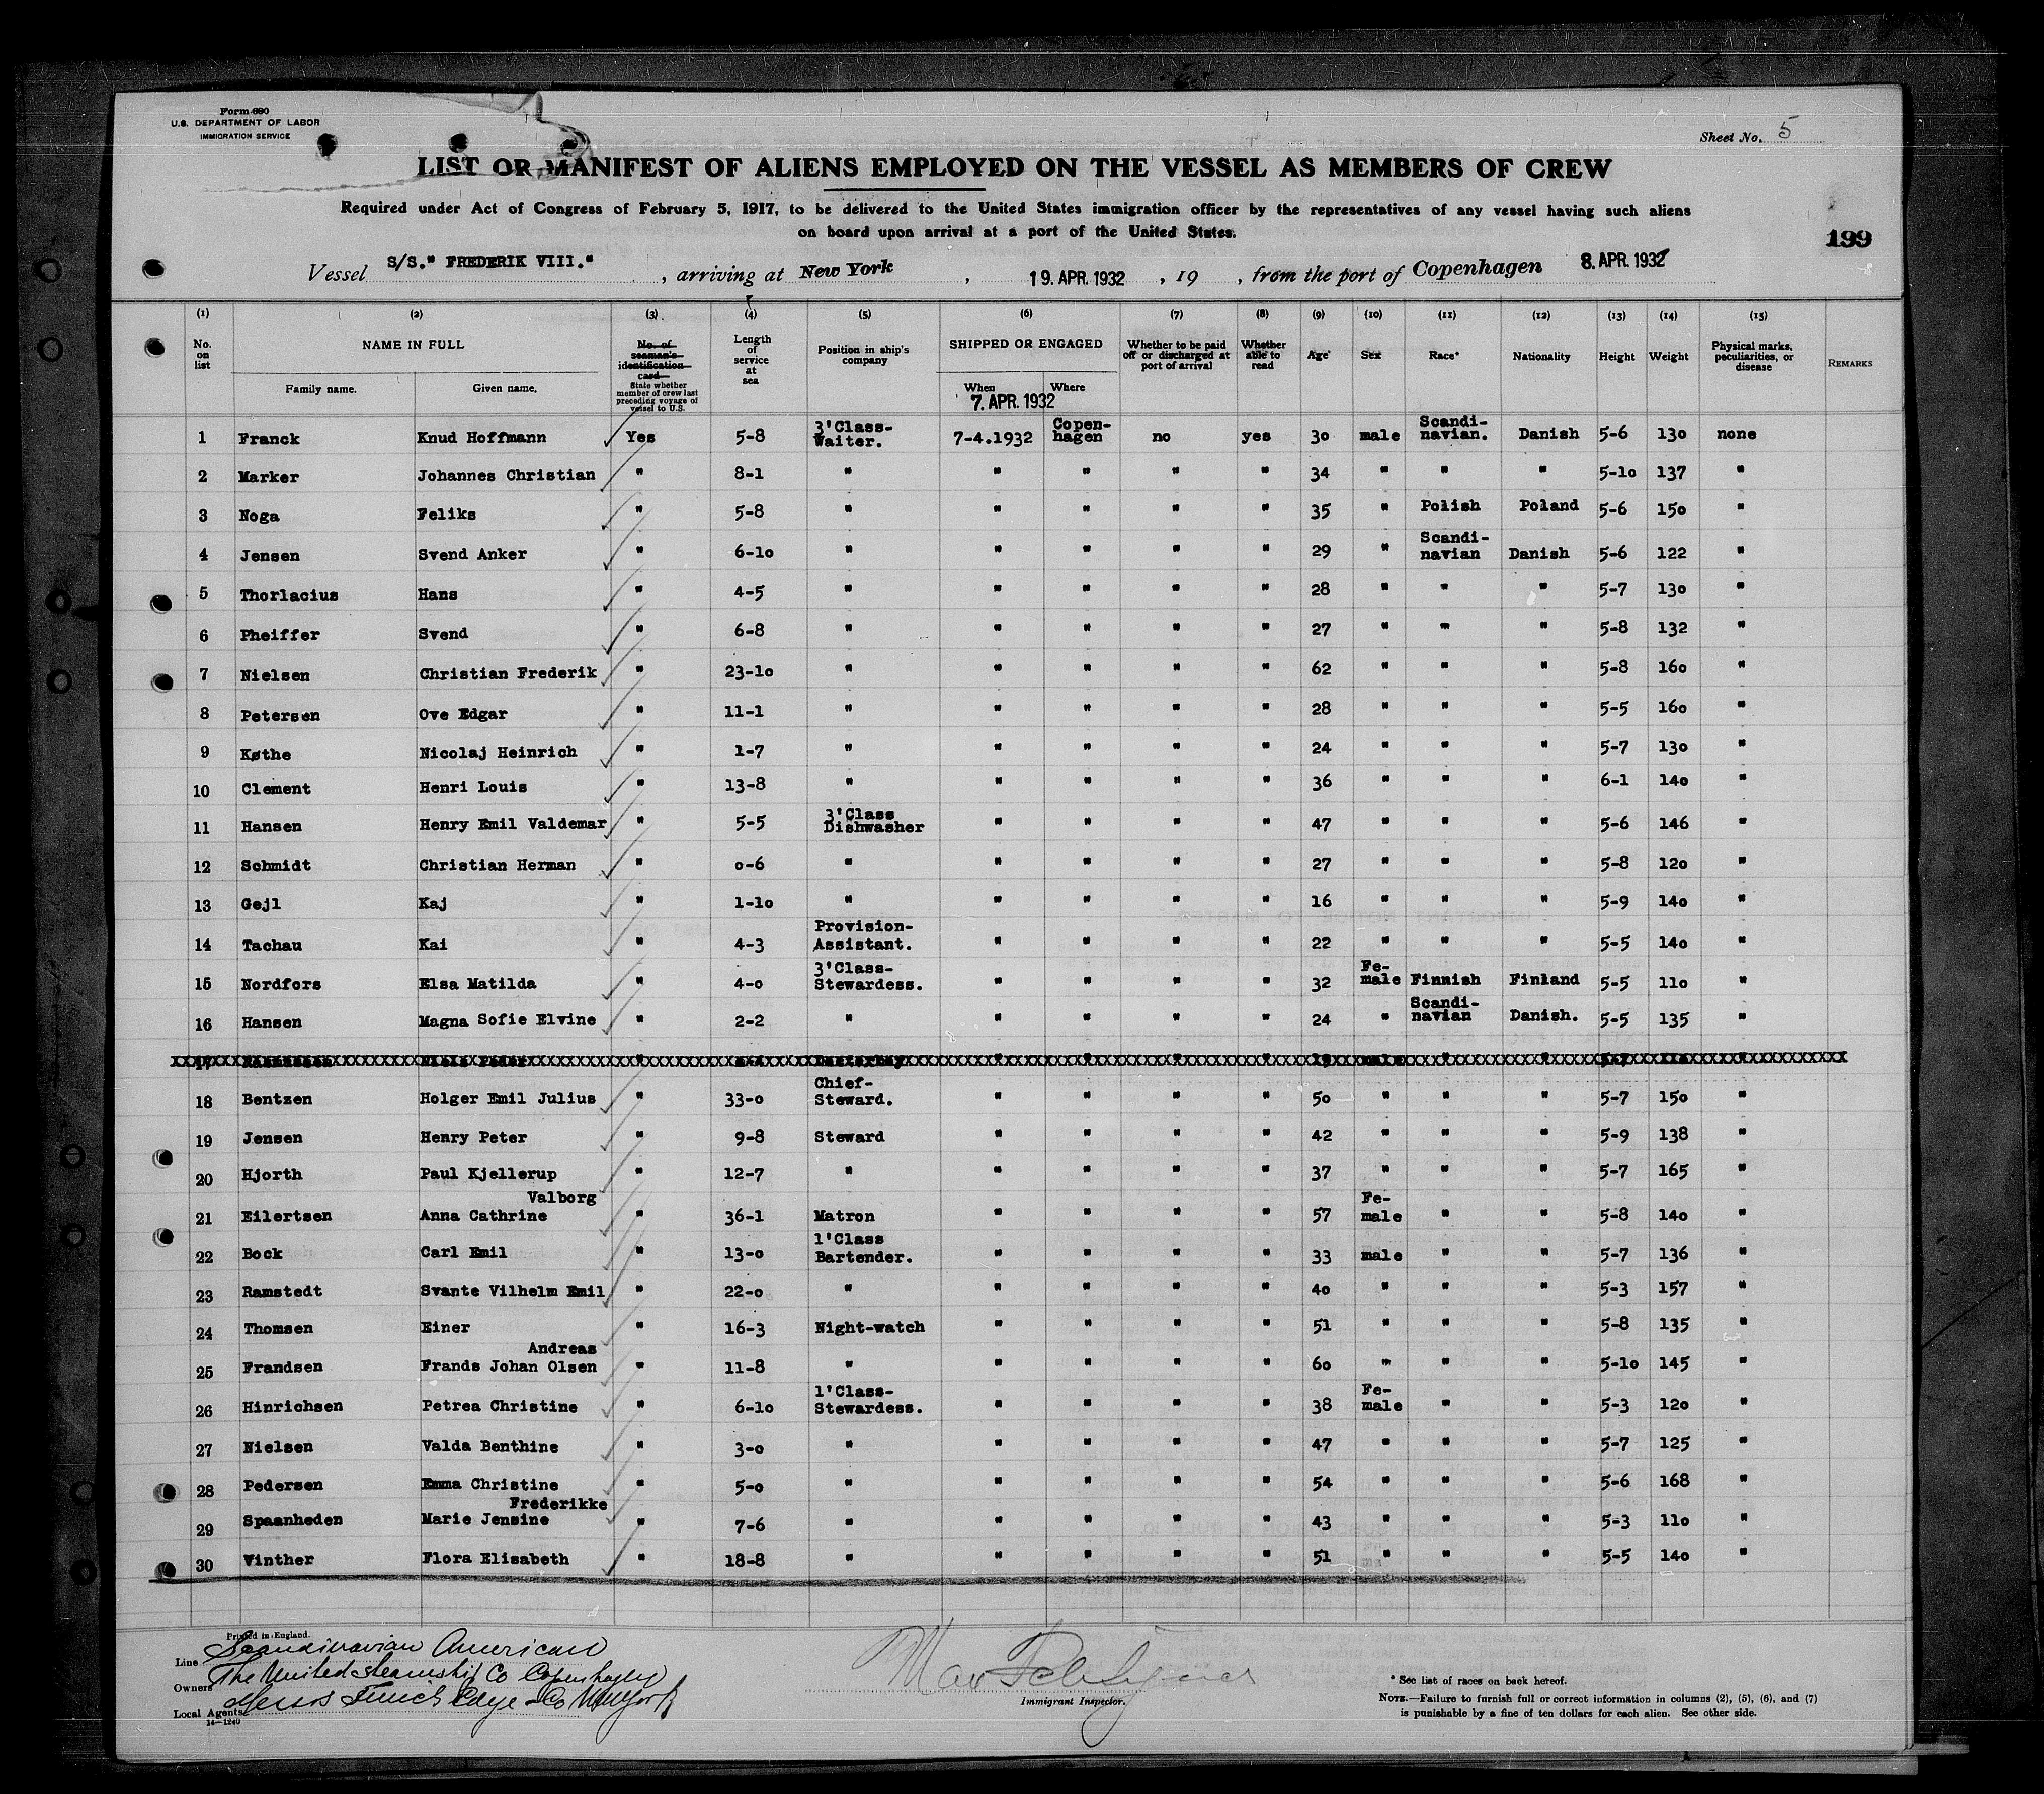 Form 680
U.S. DEPARTMENT OF LABOR
IMMIGRATION SERVICE
Sheet No. 5
LIST OR MANIFEST OF ALIENS EMPLOYED ON THE VESSEL AS MEMBERS OF CREW
Required under Act of Congress of February 5, 1917, to be delivered to the United States immigration officer by the representatives of any vessel having such aliens
on board upon arrival at a port of the United States.
199
Vessel S/S." FREDERIK VIII." , arriving at New York , 19. APR. 1932 , 19 , from the port of Copenhagen 8. APR. 1932
(1) (2) (3) (4) (5) (6) (7) (8) (9) (10) (11) (12) (13) (14) (15)
No. on list NAME IN FULL Family name. Given name. No. of seaman's identification card State whether member of crew last preceding voyage of vessel to U.S. Length of service at sea Position in ship's company SHIPPED OR ENGAGED When Where Whether to be paid off or discharged at port of arrival Whether able to read Age Sex Race* Nationality Height Weight Physical marks, peculiarities, or disease REMARKS
7. APR. 1932
1 Franck Knud Hoffmann Yes 5-8 3'Class-Waiter. 7-4.1932 Copen-hagen no yes 30 male Scandi-navian. Danish 5-6 130 none
2 Marker Johannes Christian " 8-1 " " " " " 34 " " " 5-10 137 "
3 Noga Feliks " 5-8 " " " " " 35 " Polish Poland 5-6 150 "
4 Jensen Svend Anker " 6-10 " " " " " 29 " Scandi-navian Danish 5-6 122 "
5 Thorlacius Hans " 4-5 " " " " " 28 " " " 5-7 130 "
6 Pheiffer Svend " 6-8 " " " " " 27 " " " 5-8 132 "
7 Nielsen Christian Frederik " 23-10 " " " " " 62 " " " 5-8 160 "
8 Petersen Ove Edgar " 11-1 " " " " " 28 " " " 5-5 160 "
9 Køthe Nicolaj Heinrich " 1-7 " " " " " 24 " " " 5-7 130 "
10 Clement Henri Louis " 13-8 " " " " " 36 " " " 6-1 140 "
11 Hansen Henry Emil Valdemar " 5-5 3'Class Dishwasher " " " " 47 " " " 5-6 146 "
12 Schmidt Christian Herman " 0-6 " " " " " 27 " " " 5-8 120 "
13 Gejl Kaj " 1-10 " " " " " 16 " " " 5-9 140 "
14 Tachau Kai " 4-3 Provision-Assistant. " " " " 22 " " " 5-5 140 "
15 Nordfors Elsa Matilda " 4-0 3'Class-Stewardess. " " " " 32 Fe-male Finnish Finland 5-5 110 "
16 Hansen Magna Sofie Elvine " 2-2 " " " " " 24 " Scandi-navian Danish. 5-5 135 "
17 Niels Peder " " " " " 19 male " " 5-7 "
18 Bentzen Holger Emil Julius " 33-0 Chief-Steward. " " " " 50 " " " 5-7 150 "
19 Jensen Henry Peter " 9-8 Steward " " " " 42 " " " 5-9 138 "
20 Hjorth Paul Kjellerup " 12-7 " " " " " 37 " " " 5-7 165 "
Valborg
21 Eilertsen Anna Cathrine " 36-1 Matron " " " " 57 Fe-male " " 5-8 140 "
22 Bock Carl Emil " 13-0 1'Class Bartender. " " " " 33 male " " 5-7 136 "
23 Ramstedt Svante Vilhelm Emil " 22-0 " " " " " 40 " " " 5-3 157 "
24 Thomsen Einer " 16-3 Night-watch " " " " 51 " " " 5-8 135 "
Andreas
25 Frandsen Frands Johan Olsen " 11-8 " " " " " 60 " " " 5-10 145 "
26 Hinrichsen Petrea Christine " 6-10 1'Class-Stewardess. " " " " 38 Fe-male " " 5-3 120 "
27 Nielsen Valda Benthine " 3-0 " " " " " 47 " " " 5-7 125 "
28 Pedersen Emma Christine " 5-0 " " " " " 54 " " " 5-6 168 "
Frederikke
29 Spaanheden Marie Jensine " 7-6 " " " " " 43 " " " 5-3 110 "
30 Vinther Flora Elisabeth " 18-8 " " " " " 51 " " " 5-5 140 "
Printed in England.
Line Scandinavian American
Owners The United Steamship Co Copenhagen
Local Agents Messrs Funch Edye Co New York
14-1240
Immigrant Inspector.
* See list of races on back hereof.
NOTE.—Failure to furnish full or correct information in columns (2), (5), (6), and (7)
is punishable by a fine of ten dollars for each alien. See other side.